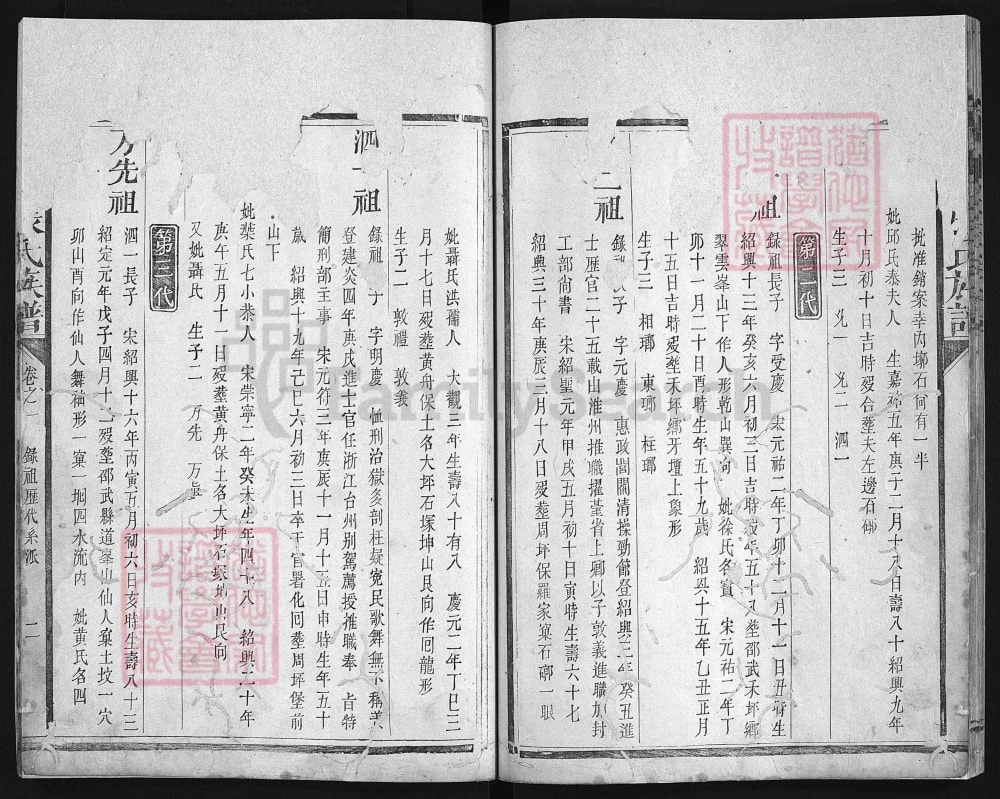 批准銷案幸內塚石何有一半
妣邱氏恭夫人 生嘉祐五年庚子二月十八日壽八十紹興九年
十月初十日吉時歿合塟夫左邊石
生子三 兇一 兇二 泗一
第二代
祖
錄祖長子 字受慶 宋元祐二年丁卯十一月十一日丑時生
紹興十三年癸亥六月初三日吉時歿年五十八塟邵武禾坪鄉
翠雲峯山下作人形乾山巽向 妣徐氏各賓 宋元祐二年丁
卯十一月二十日酉時生年五十九歲 紹興十五年乙丑正月
十五日吉時歿塟禾坪鄉牙壇上象形
生子三 相瑯 東瑯 枉瑯
二祖
錄 次子 字元慶 惠政闓闓清操勁節登紹興三年癸丑進
士歷官二十五載山淮州推職擢臺省上卿以子敦義進職加封
工部尙書 宋紹聖元年甲戌五月初十日寅時生壽六十七
紹興三十年庚辰三月十八日歿塟周坪保羅家窠石 一眼
妣聶氏洪孺人 大觀三年生壽八十有八 慶元二年丁巳三
月十七日歿塟黄舟保土名大坪石塚坤山艮向作囘龍形
生子二 敦禮 敦義
泗一祖
錄祖 子 字明慶 恤刑治獄多剖枉疑寃民歌舞無不稱美
登建炎四年庚戌進士官任浙江台州别駕薦授推職奉 旨特
簡刑部主事 宋元符三年庚辰十一月十五日申時生年五十
歲 紹興十九年己巳六月初三日卒于官署化囘塟周坪堡前
山下
妣葉氏七小恭人 宋崇寧二年癸未生年四十八 紹興二十年
庚午五月十一日歿塟黄舟保土名大坪石塚坤山艮向
又妣聶氏 生子二 万先
第三代
万先祖
泗一長子 宋紹興十六年丙寅五月初六日亥時生壽八十三
紹定元年戊子四月十二歿塟邵武縣道峯山仙人窠土坟一穴
卯山酉向作仙人舞袖形一窠一堋四水流內 妣黄氏名四
氏族譜
卷之一
錄祖歷代系派
二
FamilySearch